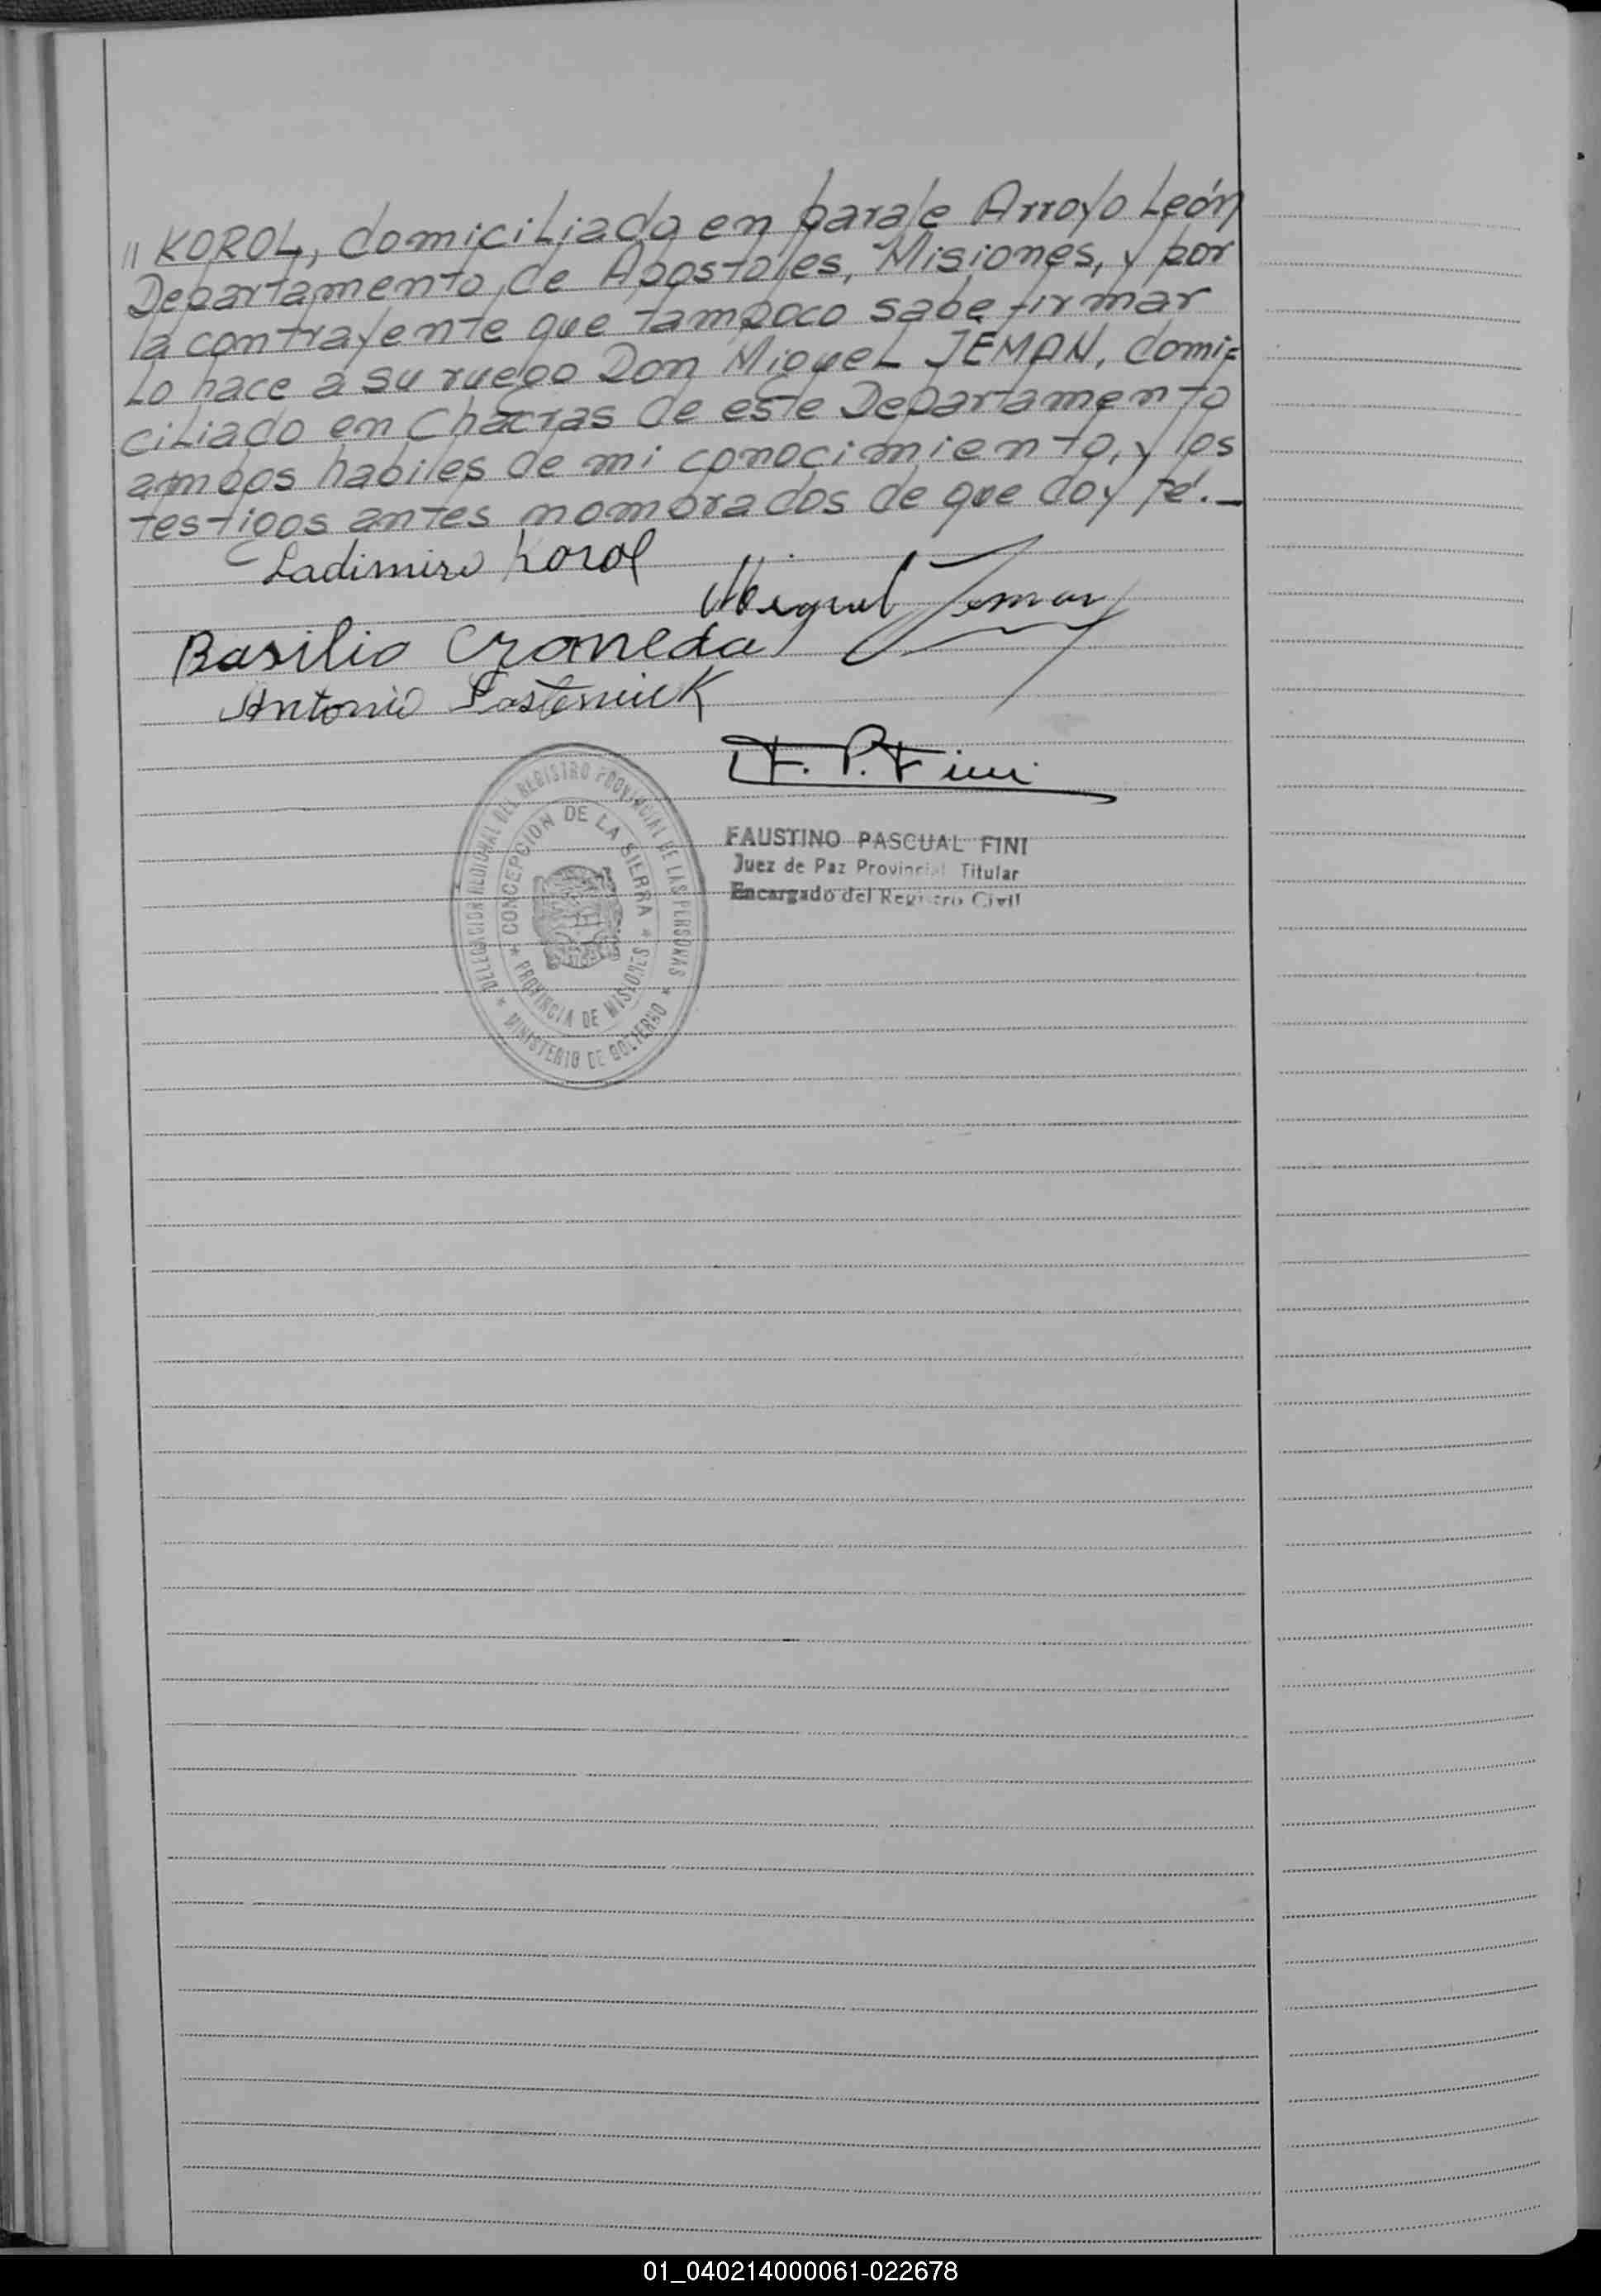 " KOROL, domiciliado en paraje Arroyo León
Departamento de Apostoles, Misiones, y por
la contrayente que tampoco sabe firmar
Lo hace a su ruego Don Miguel JEMAN, domi=
ciliado en Chacras de este Departamento
ambos habiles de mi conocimiento, y los
testigos antes nombrados de que doy fé.-
Ladimiro Korol
Miguel Jeman
Basilio
Antonio
F. P. Fini
FAUSTINO PASCUAL FINI
Juez de Paz Provincial Titular
Encargado del Registro Civil
DEL REGISTRO PROVINCIAL DE LAS PERSONAS * MINISTERIO DE GOBIERNO *
* CONCEPCION DE LA SIERRA * PROVINCIA DE MISIONES
01_040214000061-022678